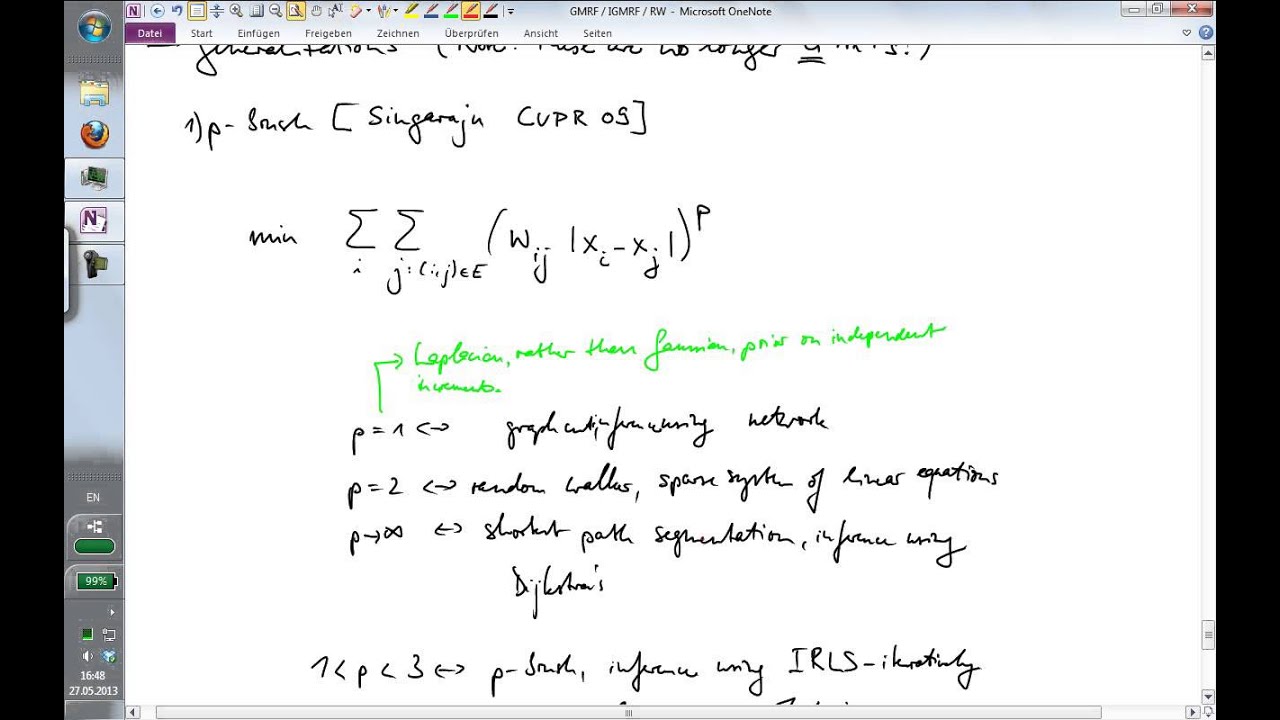 GMRF / IGMRF / RW - Microsoft OneNote
Datei Start Einfügen Freigeben Zeichnen Überprüfen Ansicht Seiten
generalizations (Note: these are no longer G M F s!)
1) p-brush [Singaraju CVPR 09]
min Σ_i Σ_{j:(i,j)∈E} (w_ij |x_i - x_j|)^p
Laplacian, rather than Gaussian, prior on independent
increments.
p=1 <-> graph cut, inference using network
p=2 <-> random walker, sparse system of linear equations
p→∞ <-> shortest path segmentation, inference using
Dijkstra's
1<p<3 <-> p-brush, inference using IRLS-iteratively
EN
99%
16:48
27.05.2013